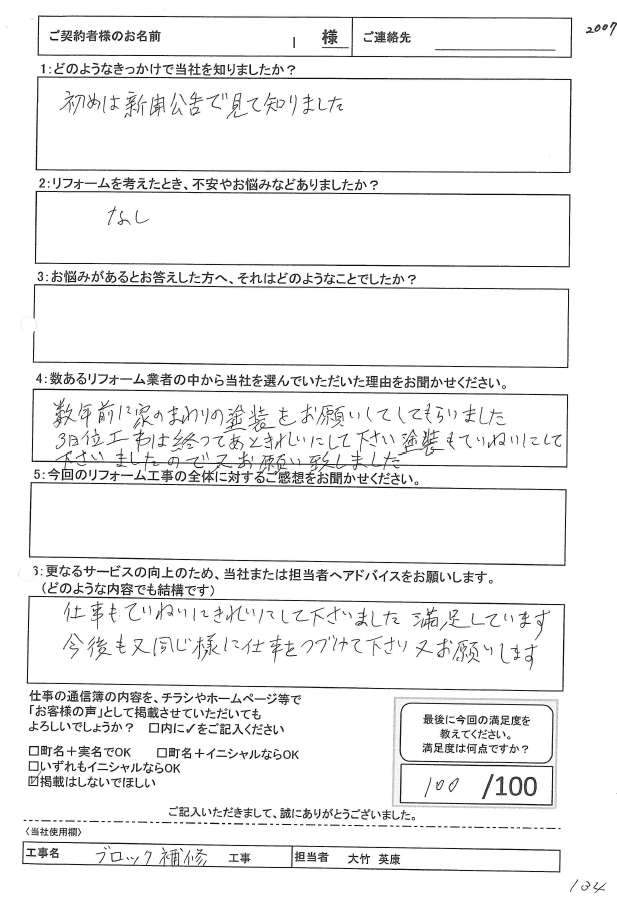 2007
ご契約者様のお名前 様 ご連絡先
1:どのようなきっかけで当社を知りましたか？
初めは新聞公告で見て知りました
2:リフォームを考えたとき、不安やお悩みなどありましたか？
なし
3:お悩みがあるとお答えした方へ、それはどのようなことでしたか？
4:数あるリフォーム業者の中から当社を選んでいただいた理由をお聞かせください。
数年前に家のまわりの塗装をお願いしてしてもらいました
3日位工事は終ってあときれいにして下さい塗装もていねいにして
下さいましたので又お願い致しました
5:今回のリフォーム工事の全体に対するご感想をお聞かせください。
3:更なるサービスの向上のため、当社または担当者へアドバイスをお願いします。
(どのような内容でも結構です)
仕事もていねいにきれいにして下さいました 満足しています
今後も又同じ様に仕事をつづけて下さい 又お願いします
仕事の通信簿の内容を、チラシやホームページ等で
「お客様の声」として掲載させていただいても
よろしいでしょうか？ □内に✓をご記入ください
□町名＋実名でOK □町名＋イニシャルならOK
□いずれもイニシャルならOK
☑掲載はしないでほしい
最後に今回の満足度を
教えてください。
満足度は何点ですか？
100 /100
ご記入いただきまして、誠にありがとうございました。
〈当社使用欄〉
工事名 ブロック補修 工事 担当者 大竹 英康
104